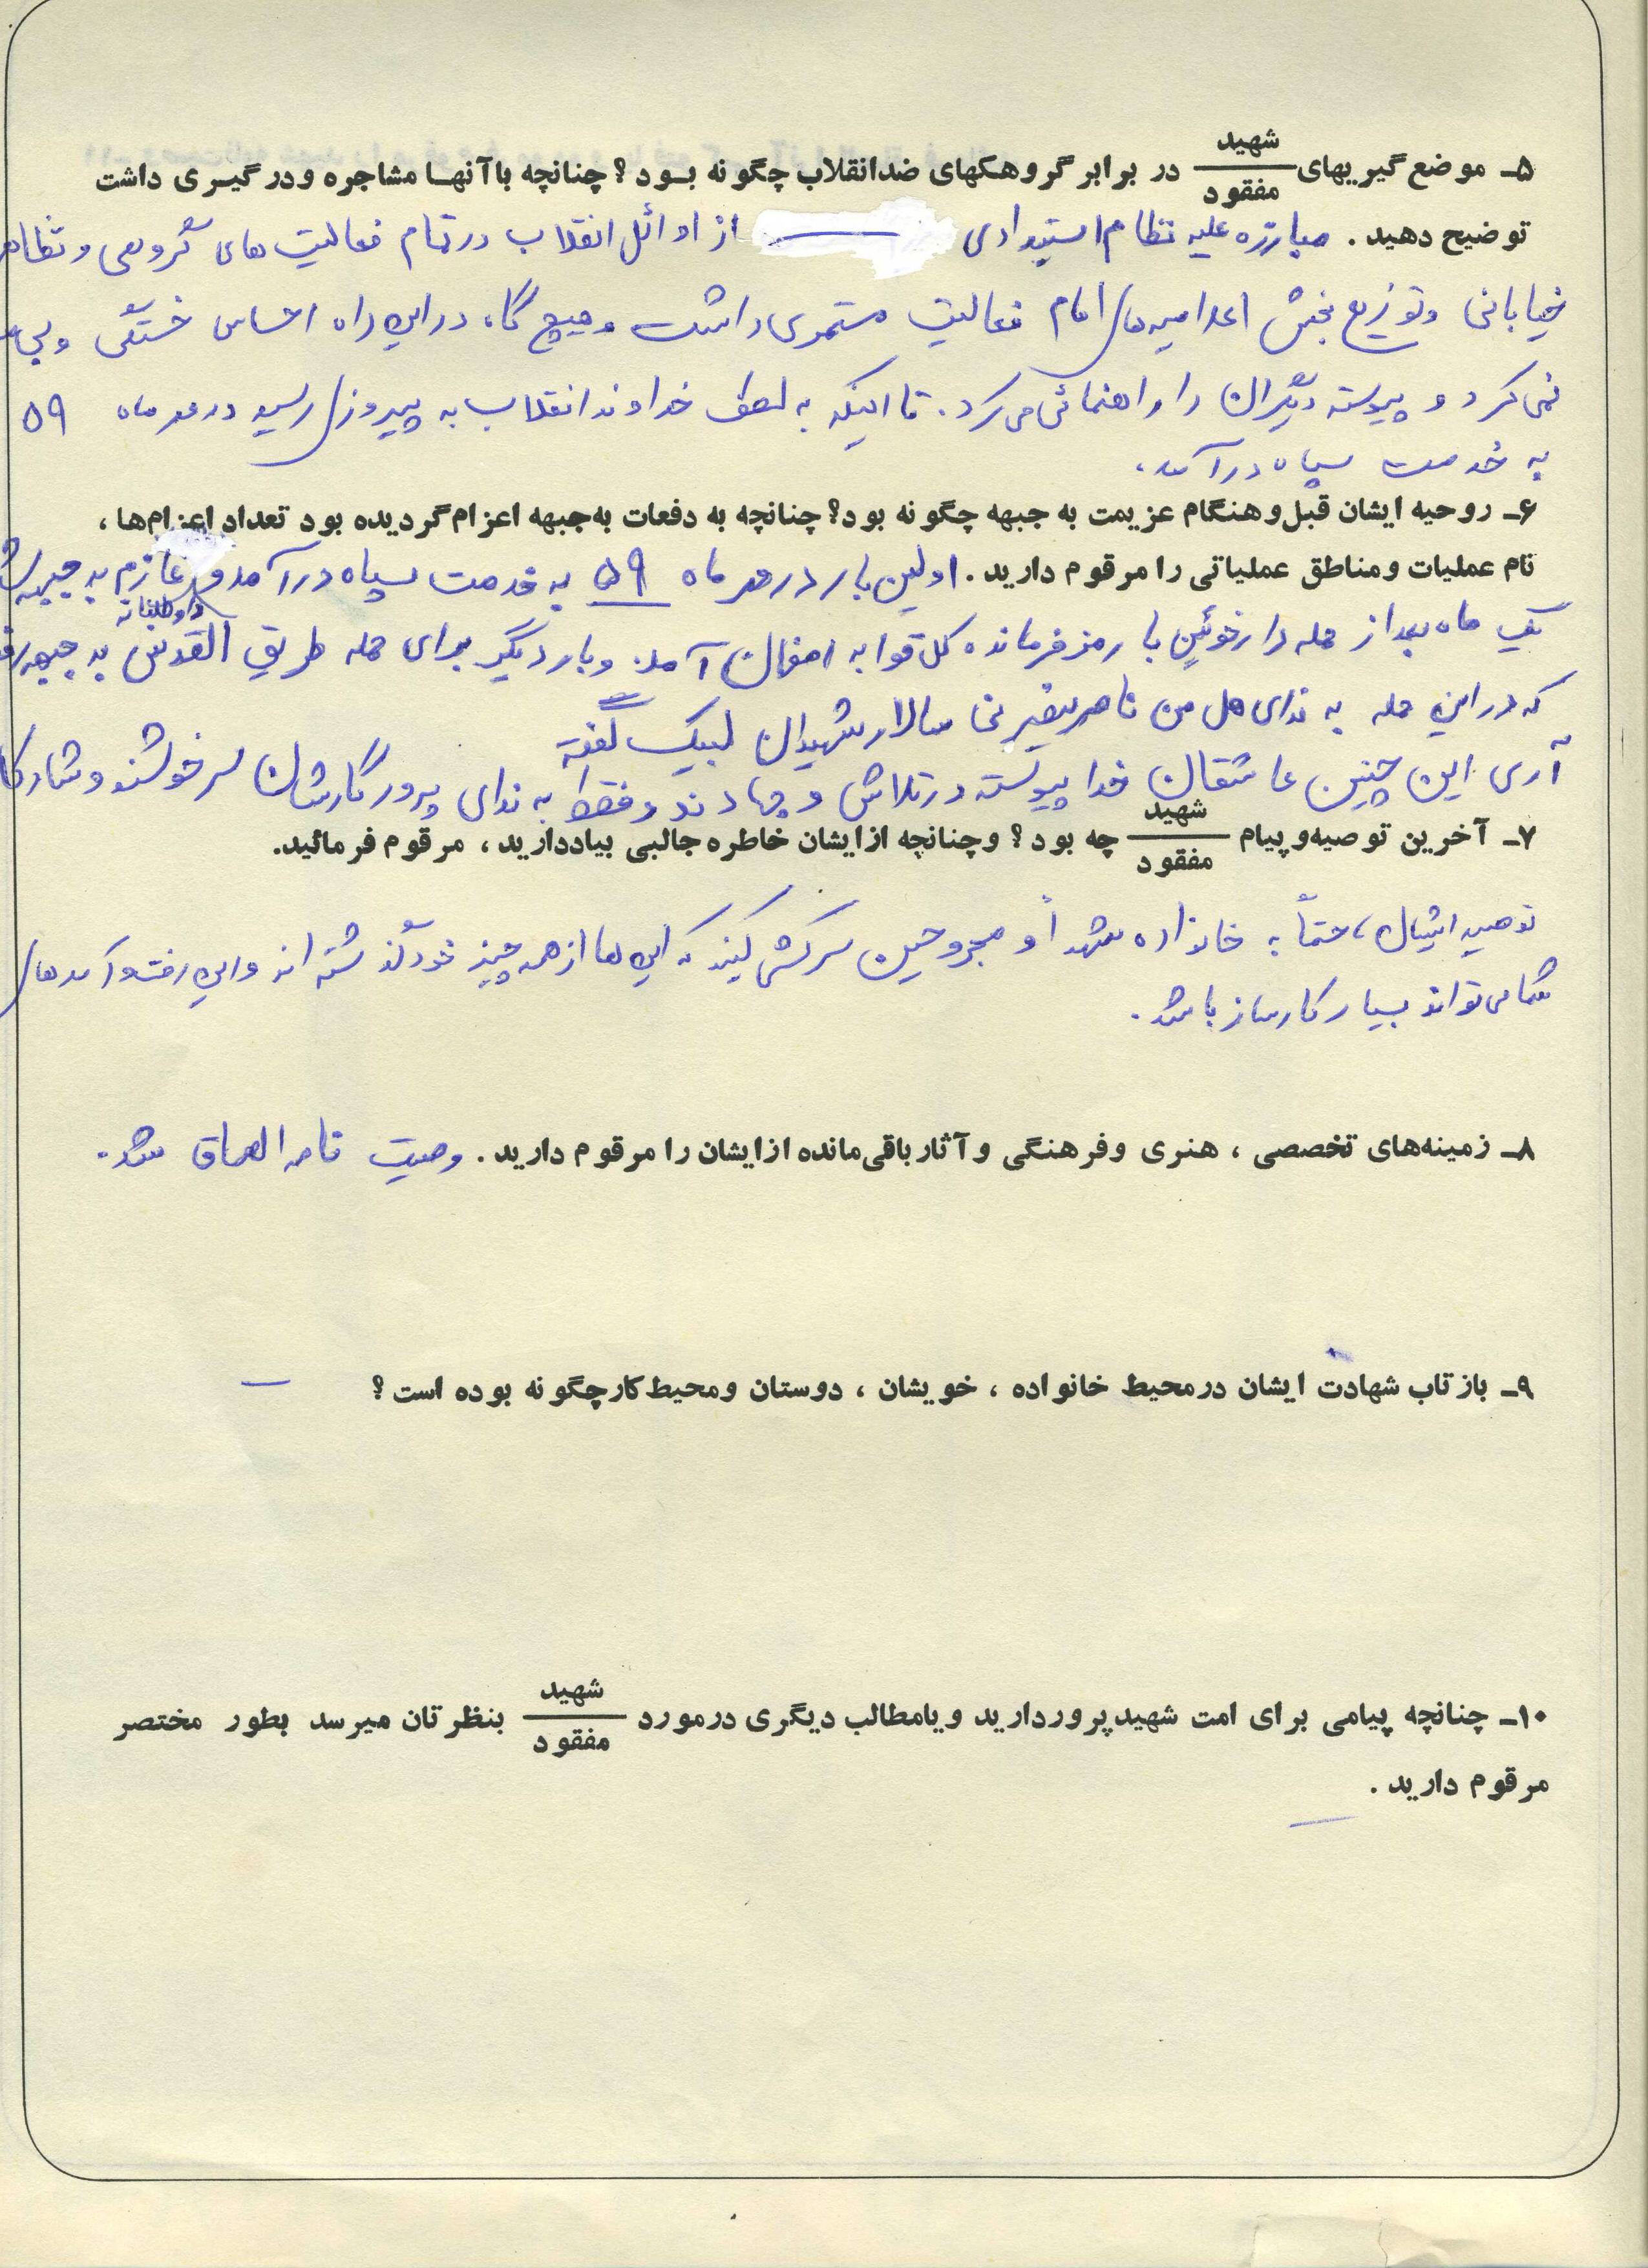 ۵ـ موضع‌گیریهای شهید/مفقود در برابر گروهکهای ضدانقلاب چگونه بود؟ چنانچه باآنها مشاجره ودرگیری داشت
توضیح دهید. مبارزه علیه نظام استبدادی از اوائل انقلاب در تمام فعالیت های گروهی و تظاهر
خیابانی و توزیع پخش اعلامیه های امام فعالیت مستمری داشت و هیچ گاه در این راه احساس خستگی و
نمی کرد و پیوسته دیگران را راهنمائی می کرد. تا اینکه به لطف خداوند انقلاب به پیروزی رسید در مهر ماه ۵۹
به خدمت سپاه در آمد.
۶ـ روحیه ایشان قبل وهنگام عزیمت به جبهه چگونه بود؟ چنانچه به دفعات به‌جبهه اعزام گردیده بود تعداد اعزام‌ها،
نام عملیات ومناطق عملیاتی را مرقوم دارید. اولین بار در مهر ماه ۵۹ به خدمت سپاه در آمد و داوطلبانه عازم به جبهه
یک ماه بعد از حمله دارخوئین با رمز فرمانده کل قوا به اصفهان آمد. و بار دیگر برای حمله طریق القدس به جبهه
که در این حمله به ندای هل من ناصر ینصرنی سالار شهیدان لبیک گفته
آری این چنین عاشقان خدا پیوسته در تلاش و جهادند و فقط به ندای پرورگارشان سرخوشند و
۷ـ آخرین توصیه‌وپیام شهید/مفقود چه بود؟ وچنانچه ازایشان خاطره جالبی بیاددارید، مرقوم فرمائید.
توصیه ایشان، حتماً به خانواده شهدا و مجروحین سرکشی کنید که این ها از همه چیز خود گذشته اند و این رفت و آمدهای
شما می تواند بسیار کارساز باشد.
۸ـ زمینه‌های تخصصی، هنری وفرهنگی وآثارباقی‌مانده ازایشان را مرقوم دارید. وصیت نامه الصاق شد.
۹ـ بازتاب شهادت ایشان درمحیط خانواده، خویشان، دوستان ومحیط کارچگونه بوده است؟ —
۱۰ـ چنانچه پیامی برای امت شهیدپروردارید ویامطالب دیگری درمورد شهید/مفقود بنظرتان میرسد بطور مختصر
مرقوم دارید.
—